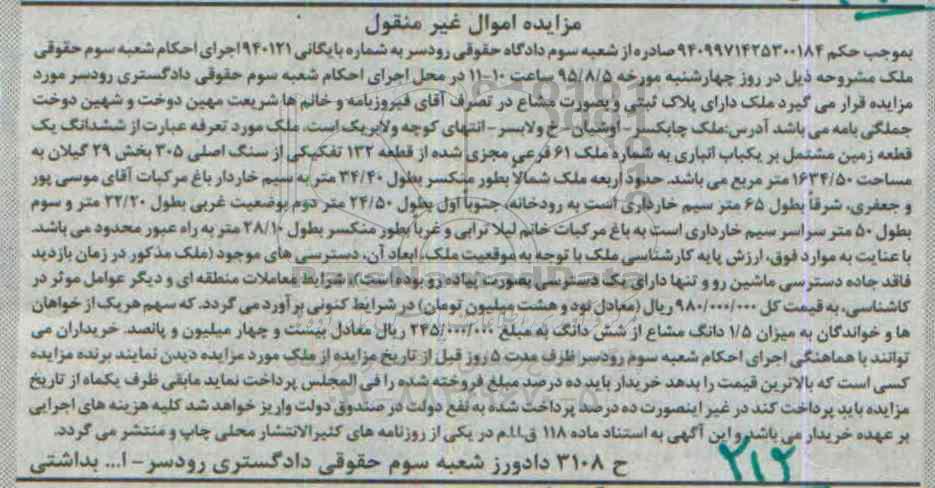 مزایده اموال غیر منقول
بموجب حکم ۹۴۰۹۹۷۱۴۲۵۳۰۰۱۸۴ صادره از شعبه سوم دادگاه حقوقی رودسر به شماره بایگانی ۹۴۰۱۲۱ اجرای احکام شعبه سوم حقوقی
ملک مشروحه ذیل در روز چهارشنبه مورخه ۹۵/۸/۵ ساعت ۱۰-۱۱ در محل اجرای احکام شعبه سوم حقوقی دادگستری رودسر مورد
مزایده قرار می گیرد ملک دارای پلاک ثبتی و بصورت مشاع در تصرف آقای فیروزبامه و خانم ها شریعت مهین دوخت و شهین دوخت
جملگی بامه می باشد آدرس:ملک چابکسر-اوشیان-خ ولابسر-انتهای کوچه ولابریک است. ملک مورد تعرفه عبارت از ششدانگ یک
قطعه زمین مشتمل بر یکباب انباری به شماره ملک ۶۱ فرعی مجزی شده از قطعه ۱۳۲ تفکیکی از سنگ اصلی ۳۰۵ بخش ۲۹ گیلان به
مساحت ۱۶۳۴/۵۰ متر مربع می باشد. حدود اربعه ملک شمالا بطور منکسر بطول ۳۴/۴۰ متر به سیم خاردار باغ مرکبات آقای موسی پور
و جعفری، شرقا بطول ۶۵ متر سیم خارداری است به رودخانه، جنوبا اول بطول ۲۴/۵۰ متر دوم بوضعیت غربی بطول ۲۲/۲۰ متر و سوم
بطول ۵۰ متر سراسر سیم خارداری است به باغ مرکبات خانم لیلا ترابی و غربا بطور منکسر بطول ۲۸/۱۰ متر به راه عبور محدود می باشد.
با عنایت به موارد فوق، ارزش پایه کارشناسی ملک با توجه به موقعیت ملک، ابعاد آن، دسترسی های موجود (ملک مذکور در زمان بازدید
فاقد جاده دسترسی ماشین رو و تنها دارای یک دسترسی بصورت پیاده رو بوده است) شرایط معاملات منطقه ای و دیگر عوامل موثر در
کاشناسی، به قیمت کل ۹۸۰/۰۰۰/۰۰۰ ریال (معادل نود و هشت میلیون تومان) در شرایط کنونی برآورد می گردد. که سهم هریک از خواهان
ها و خواندگان به میزان ۱/۵ دانگ مشاع از شش دانگ به مبلغ ۲۴۵/۰۰۰/۰۰۰ ریال معادل بیست و چهار میلیون و پانصد. خریداران می
توانند با هماهنگی اجرای احکام شعبه سوم رودسر ظرف مدت ۵ روز قبل از تاریخ مزایده از ملک مورد مزایده دیدن نمایند برنده مزایده
کسی است که بالاترین قیمت را بدهد خریدار باید ده درصد مبلغ فروخته شده را فی المجلس پرداخت نماید مابقی ظرف یکماه از تاریخ
مزایده باید پرداخت کند در غیر اینصورت ده درصد پرداخت شده به نفع دولت در صندوق دولت واریز خواهد شد کلیه هزینه های اجرایی
بر عهده خریدار می باشد و این آگهی به استناد ماده ۱۱۸ ق.ا.ا.م در یکی از روزنامه های کثیرالانتشار محلی چاپ و منتشر می گردد.
ح ۳۱۰۸ دادورز شعبه سوم حقوقی دادگستری رودسر-ا... بداشتی
ParsNamadData